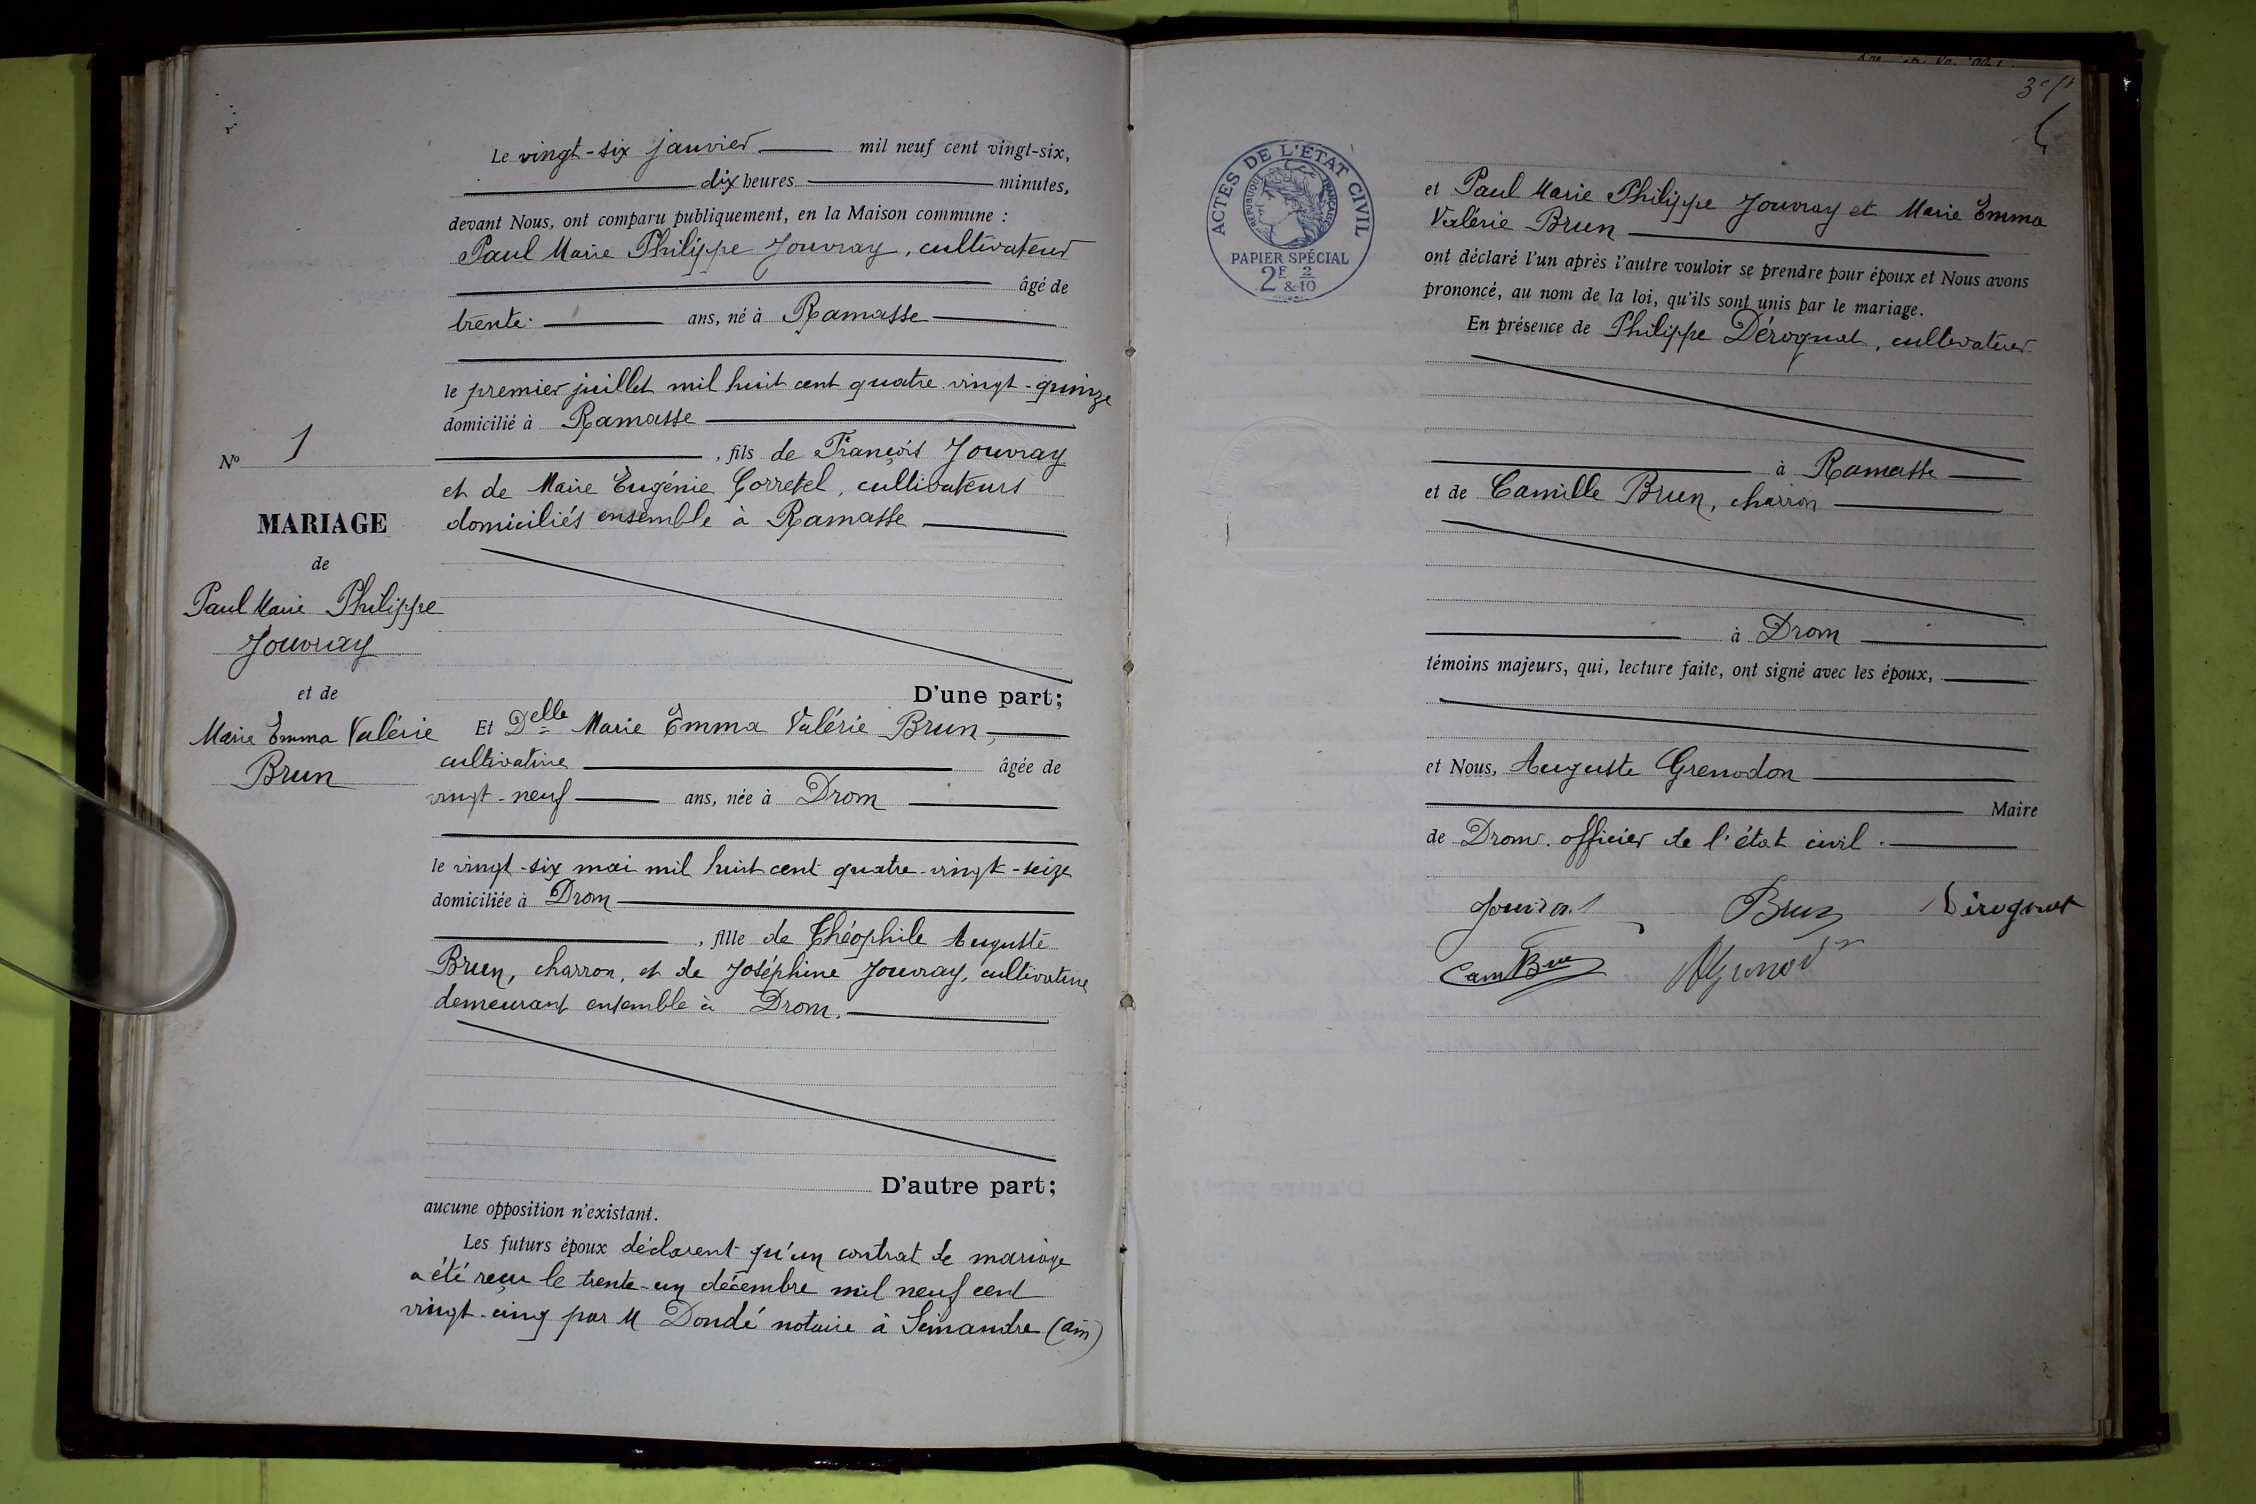 Le vingt-six janvier mil neuf cent vingt-six,
dix heures minutes,
devant Nous, ont comparu publiquement, en la Maison commune :
Paul Marie Philippe Jouvray, cultivateur
âgé de
trente ans, né à Ramasse
le premier juillet mil huit cent quatre-vingt-quinze
domicilié à Ramasse
, fils de François Jouvray
et de Marie Eugénie Corretel, cultivateurs
domiciliés ensemble à Ramasse
D'une part;
Nº 1
MARIAGE
de
Paul Marie Philippe
Jouvray
et de
Marie Emma Valérie
Brun
Et Delle Marie Emma Valérie Brun,
cultivatrice âgée de
vingt-neuf ans, née à Drom
le vingt-six mai mil huit cent quatre-vingt-seize
domiciliée à Drom
, fille de Théophile Auguste
Brun, charron, et de Joséphine Jouvray, cultivatrice
demeurant ensemble à Drom.
D'autre part;
aucune opposition n'existant.
Les futurs époux déclarent qu'un contrat de mariage
a été reçu le trente-un décembre mil neuf cent
vingt-cinq par M Dondé notaire à Simandre (Ain)
ACTES DE L'ÉTAT CIVIL
RÉPUBLIQUE FRANÇAISE
PAPIER SPÉCIAL
2F & 2/10
et Paul Marie Philippe Jouvray et Marie Emma
Valérie Brun
ont déclaré l'un après l'autre vouloir se prendre pour époux et Nous avons
prononcé, au nom de la loi, qu'ils sont unis par le mariage.
En présence de Philippe Dérognat, cultivateur
à Ramasse
et de Camille Brun, charron
à Drom
témoins majeurs, qui, lecture faite, ont signé avec les époux,
et Nous, Auguste Grenodon
Maire
de Drom. officier de l'état civil.
Brun Dérognat
Cam Brun